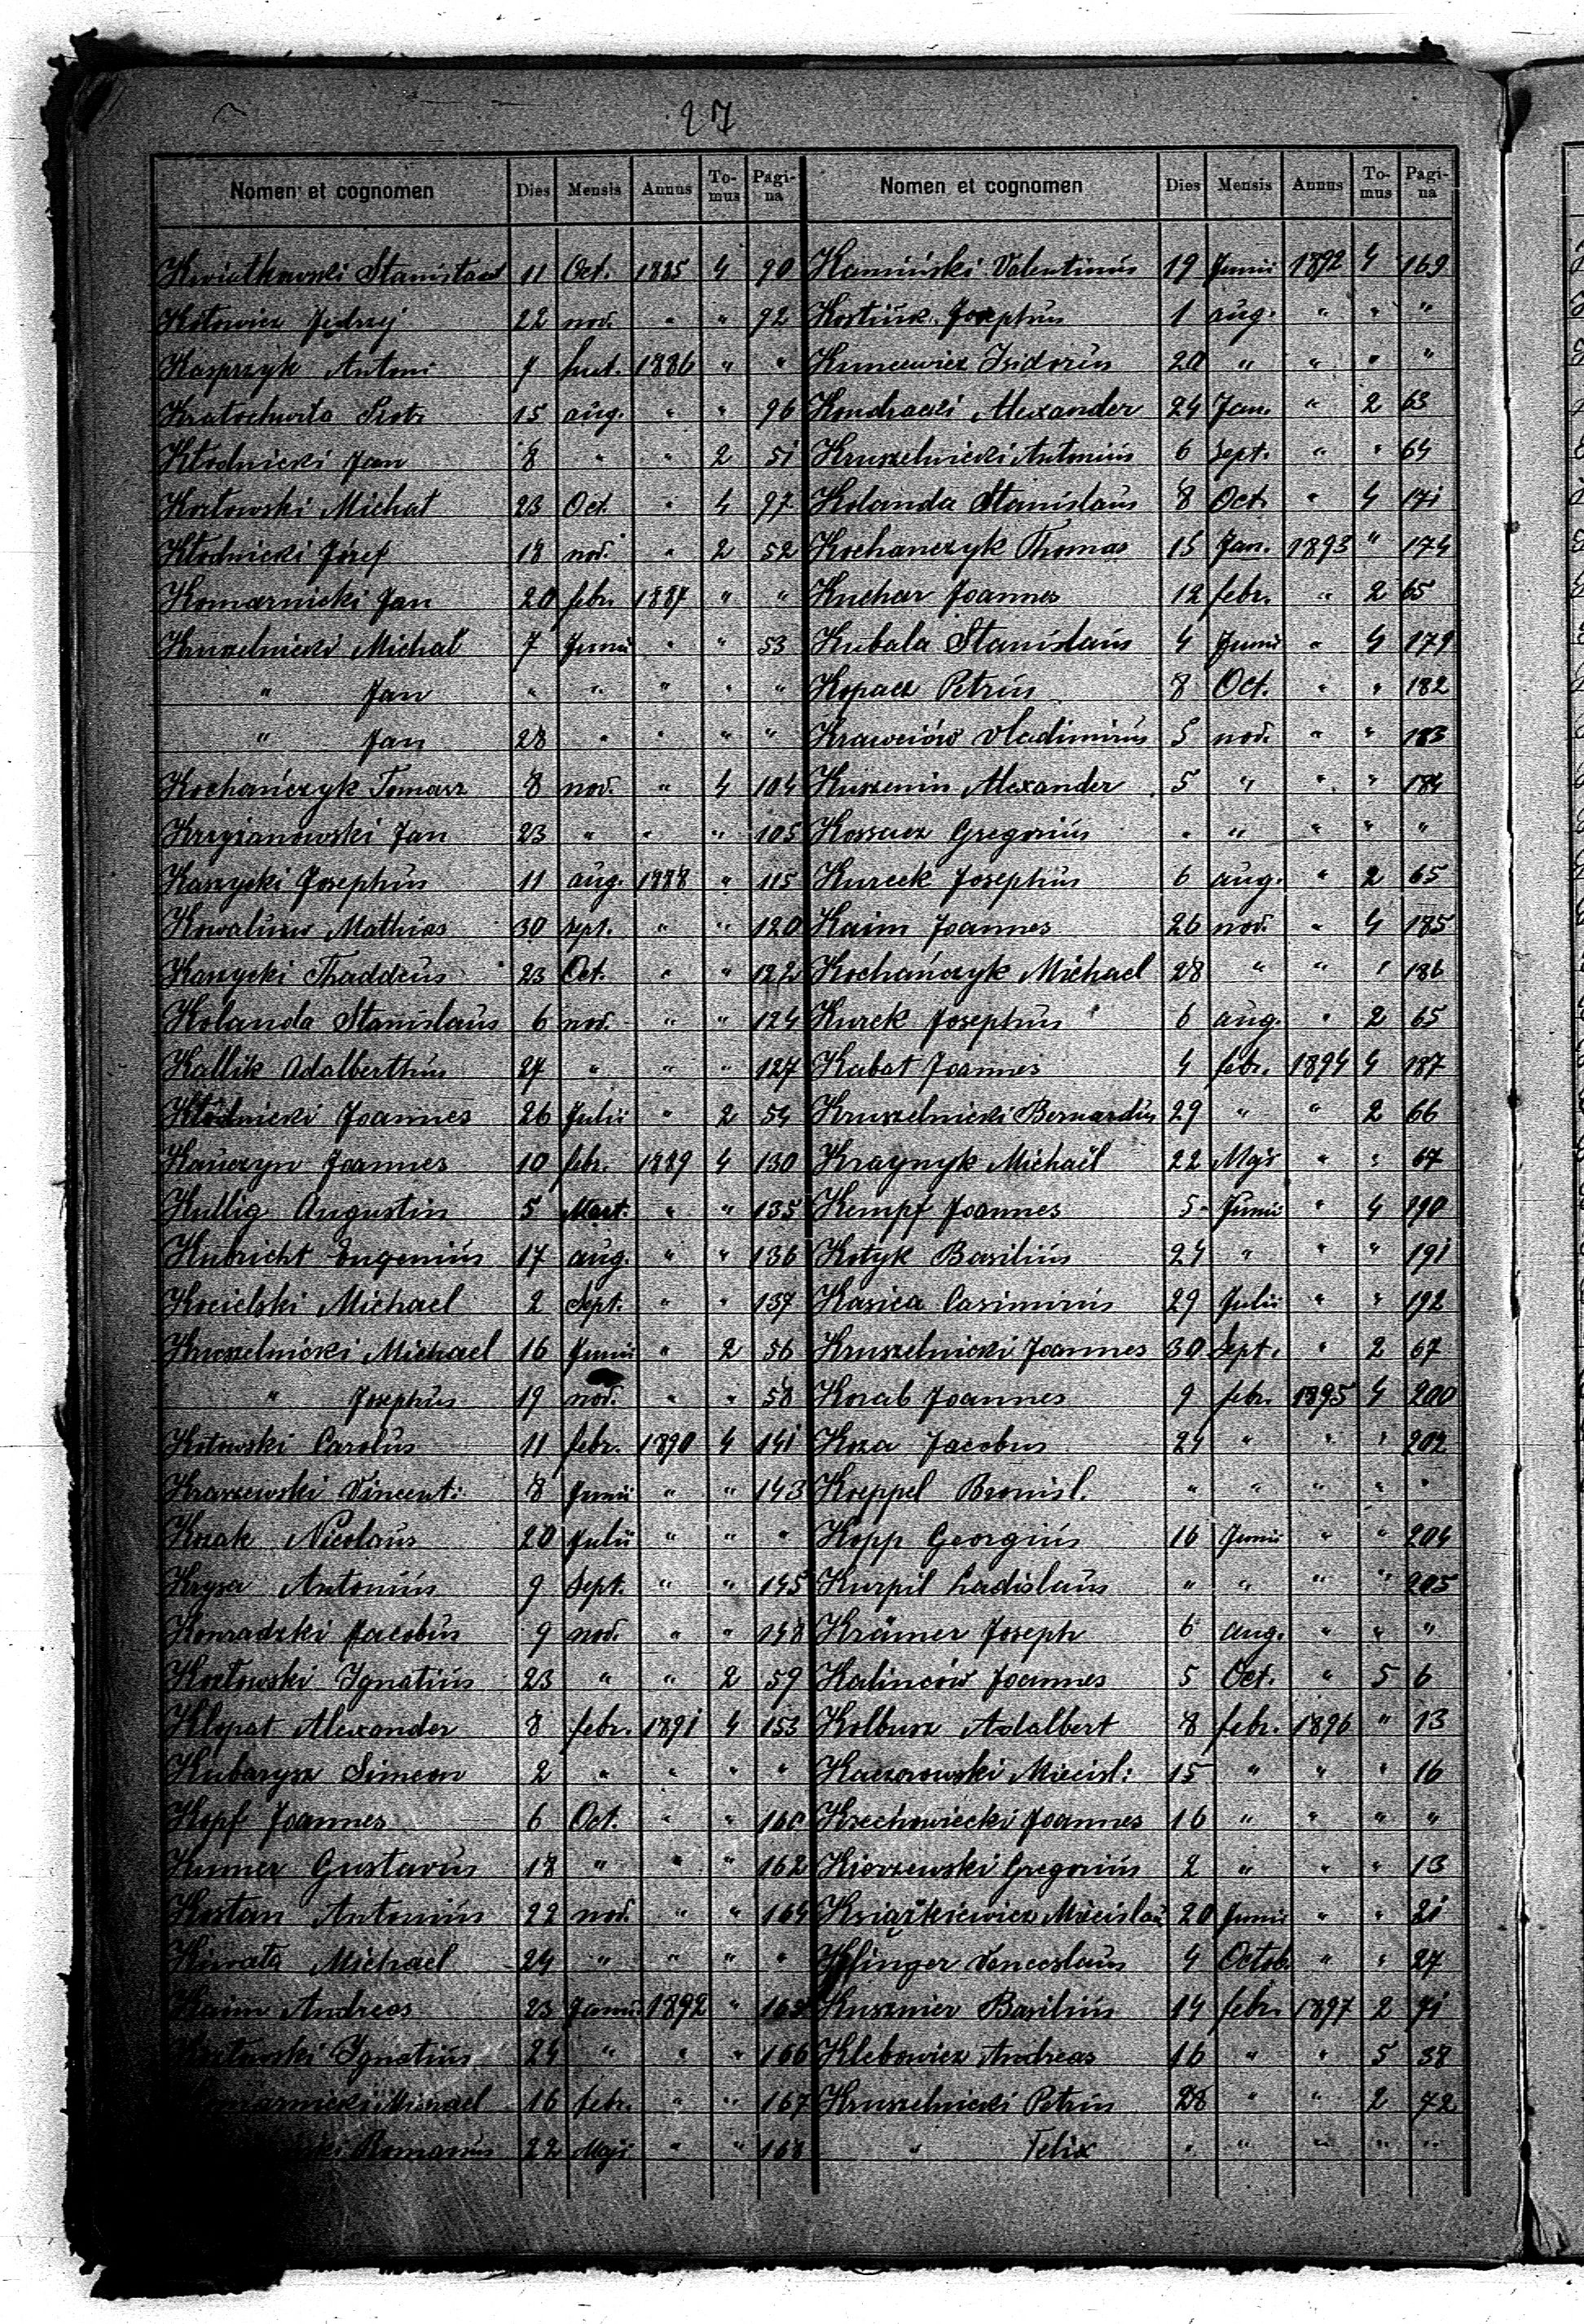 27
Nomen et cognomen Dies Mensis Annus To-mus Pagi-na
Kwiatkowski Stanisław 11 Oct. 1885 4 90
Kotowicz Jędrzej 22 nov. " " 92
Kasprzyk Antoni 7 1886 " "
Kratochwila Piotr 15 aug. " " 96
Kłodnicki Jan 8 " " 2 51
Kozłowski Michał 23 Oct. " 4 97
Kłodnicki Józef 18 nov. " 2 52
Komarnicki Jan 20 febr. 1887 " "
Kruszelnicki Michał 7 Junii " " 53
" Jan " " " " "
" Jan 28 " " " "
Kochańczyk Tomasz 8 nov. " 4 104
Krzyżanowski Jan 23 " " " 105
Kaszycki Josephus 11 aug. 1888 " 115
Kowalów Mathias 30 sept. " " 120
Kaszycki Thaddeus 23 Oct. " " 122
Kolanda Stanislaus 6 nov. " " 124
Kallik Adalberthus 27 " " " 127
Kłodnicki Joannes 26 Julii " 2 54
Kańczyn Joannes 10 febr. 1889 4 130
Kullig Augustin 5 Mart. " " 135
Kubricht Eugenius 17 aug. " " 136
Kocielski Michael 2 Sept. " " 137
Kruszelnicki Michael 16 Junii " 2 56
" Josephus 19 nov. " " 58
Kotowski Carolus 11 febr. 1890 4 141
Kraszewski Vincent: 8 Junii " " 143
Kozak Nicolaus 20 Julii " " "
Krysa Antonius 9 Sept. " " 145
Konradzki Jacobus 9 nov. " " 148
Kozłowski Ignatius 23 " " 2 59
Klopat Alexander 8 febr. 1891 4 153
Kubarysz Simeon 2 " " " "
Kopf Joannes 6 Oct. " " 160
Kumer Gustavus 18 " " " 162
Kostan Antonius 22 nov. " " 164
Michael 24 " " " "
Kaim Andreas 23 1892 "
Kozłowski Ignatius 24 " " " 166
Michael 16 febr. " " 167
Romanus 22 Maji " " 168
Nomen et cognomen Dies Mensis Annus To-mus Pagi-na
Kamiński Valentinus 19 Junii 1892 4 169
Kostiuk Josephus 1 aug. " " "
Kuncewicz Isidorus 20 " " " "
Kondracki Alexander 24 Jan. " 2 63
Kruszelnicki Antonius 6 Sept. " " 64
Kolanda Stanislaus 8 Oct. " 4 171
Kochańczyk Thomas 15 Jan. 1893 " 174
Kuchar Joannes 12 febr. " 2 65
Kubala Stanislaus 4 Junii " 4 179
Kopacz Petrus 8 Oct. " " 182
Krawciów Vladimirus 5 nov. " " 183
Kuszenin Alexander 5 " " " 184
Kossacz Gregorius " " " " "
Kureck Josephus 6 aug. " 2 65
Kaim Joannes 26 nov. " 4 185
Kochańczyk Michael 28 " " " 186
Kurek Josephus 6 aug. " 2 65
Kabat Joannes 4 febr. 1894 4 187
Kruszelnicki Bernardus 29 " " 2 66
Kraynyk Michaël 22 Maji " " 67
Kempf Joannes 5 Junii " 4 190
Kotyk Basilius 24 " " " 191
Kasica Casimirus 29 Julii " " 192
Kruszelnicki Joannes 30 Sept. " 2 67
Kozab Joannes 9 febr. 1895 4 200
Koza Jacobus 24 " " " 202
Koeppel Bronisl. " " " " "
Kopp Georgius 16 Junii " " 204
Kurpil Ladislaus " " " " 205
Krämer Joseph 6 aug. " " "
Kalinców Joannes 5 Oct. " 5 6
Kolbusz Adalbert 8 febr. 1896 " 13
Kaczorowski Miecisl: 15 " " " 16
Krechowiecki Joannes 16 " " " "
Kiorzewski Gregorius 2 " " " 13
Książkiewicz Miecislaus 20 Junii " " 21
Klinger Venceslaus 4 Octob. " " 27
Kuszmier Basilius 14 febr. 1897 2 71
Klebowicz Andreas 16 " " 5 38
Kruszelnicki Petrus 28 " " 2 72
" Felix " " " " "